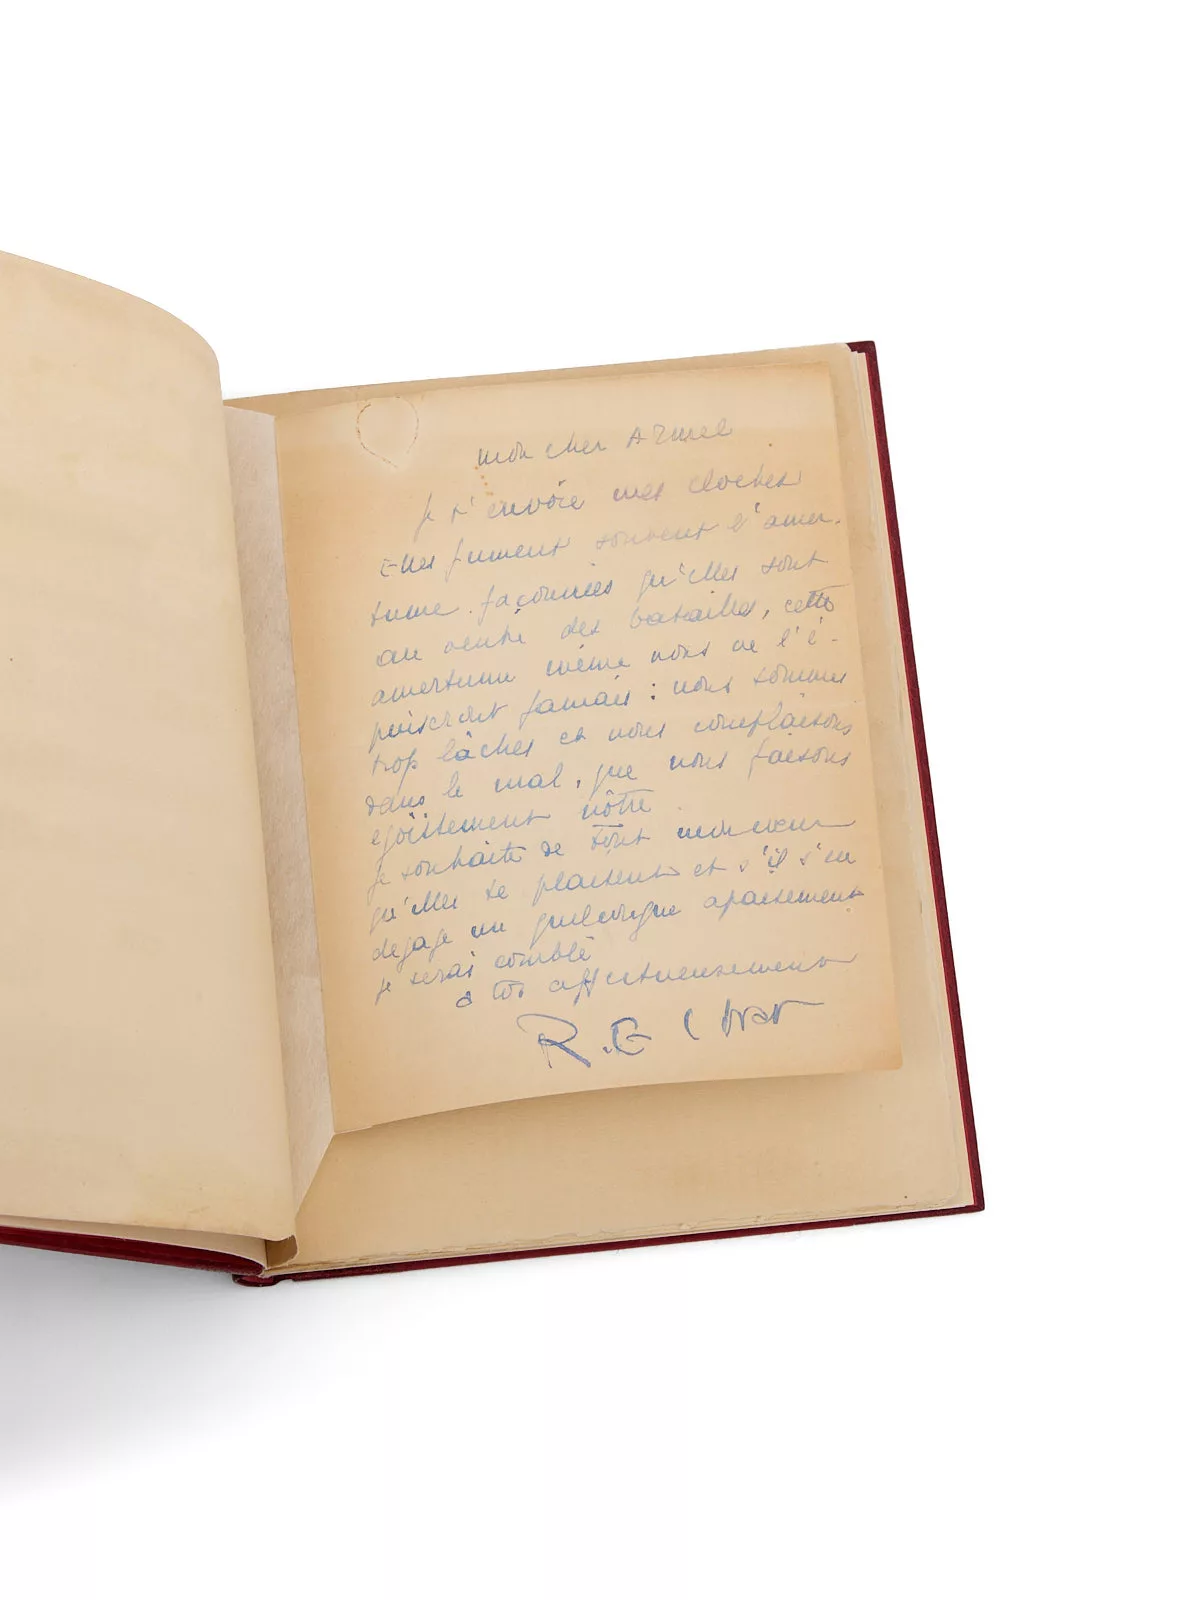 mon cher Armel
Je t'envoie mes cloches
Elles fument souvent l'amer-
tume. façonnées qu'elles sont
au ventre des batailles, cette
amertume même nous ne l'é-
puiseront jamais : nous sommes
trop lâches et nous complaisons
dans le mal, que nous faisons
egoïstement nôtre.
je souhaite de tout mon cœur
qu'elles te plaisent et s'il s'en
degage un quelconque apaisement
je serai comblé
a toi affectueusement
R.G Cadou